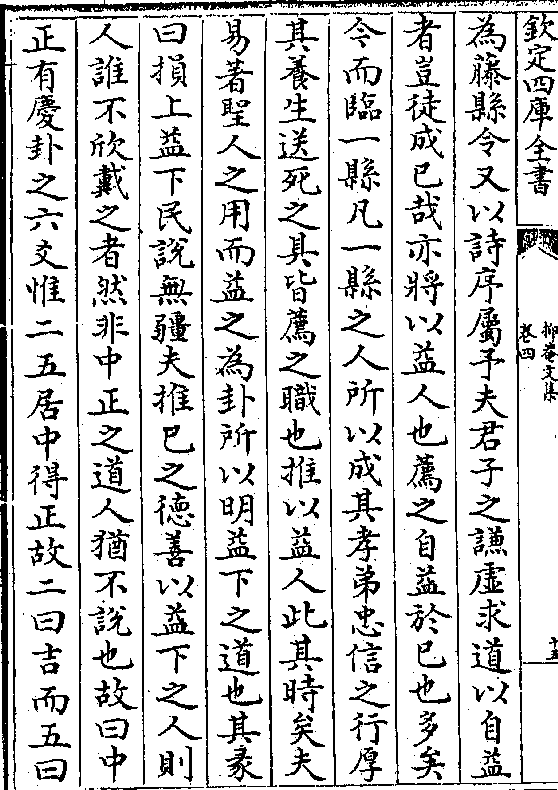 欽定四庫全書
抑菴文集
卷四
十五
為藤縣令又以詩序屬予夫君子之謙虚求道以自益
者豈徒成已哉亦將以益人也薦之自益於已也多矣
今而臨一縣凡一縣之人所以成其孝弟忠信之行厚
其養生送死之具皆薦之職也推以益人此其時矣夫
易著聖人之用而益之為卦所以明益下之道也其彖
曰損上益下民說無疆夫推已之德善以益下之人則
人誰不欣戴之者然非中正之道人猶不說也故曰中
正有慶卦之六爻惟二五居中得正故二曰吉而五曰